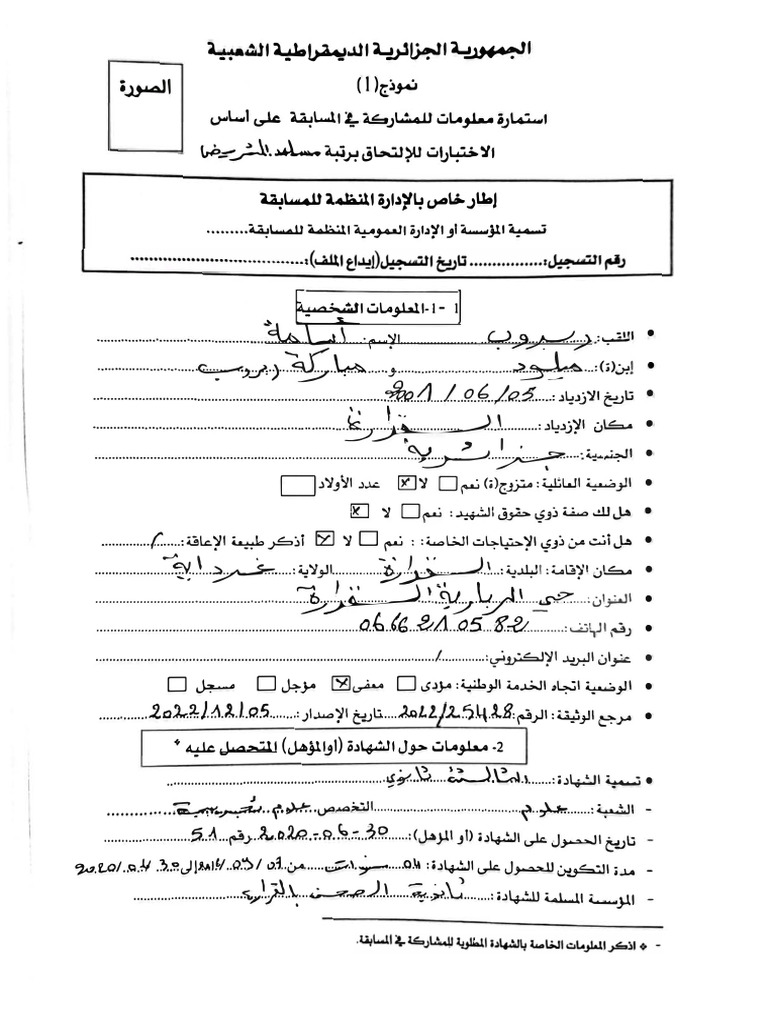 الجمهورية الجزائرية الديمقراطية الشعبية
نموذج(1)
الصورة
استمارة معلومات للمشاركة في المسابقة على أساس
الاختبارات للإلتحاق برتبة مساعد التمريض
إطار خاص بالإدارة المنظمة للمسابقة
تسمية المؤسسة أو الإدارة العمومية المنظمة للمسابقة.........
رقم التسجيل:................ تاريخ التسجيل(إيداع الملف):...................................
1 -1-المعلومات الشخصية
اللقب: الإسم: أسامة
إبن(ة): ميلود و مباركة
تاريخ الازدياد: 2001/06/05
مكان الإزدياد: القرارة
الجنسية: جزائرية
الوضعية العائلية: متزوج(ة) نعم لا x عدد الأولاد
هل لك صفة ذوي حقوق الشهيد: نعم لا x
هل أنت من ذوي الإحتياجات الخاصة: : نعم لا x أذكر طبيعة الإعاقة: /
مكان الإقامة: البلدية: القرارة الولاية: غرداية
العنوان: حي القرارة
رقم الهاتف: 0666210582
عنوان البريد الإلكتروني: /
الوضعية اتجاه الخدمة الوطنية: مؤدى معفى x مؤجل مسجل
مرجع الوثيقة: الرقم: 2022/25428 تاريخ الإصدار: 2022/12/05
2- معلومات حول الشهادة (أوالمؤهل) المتحصل عليه *
تسمية الشهادة: الثالثة ثانوي
- الشعبة: علوم التخصص علوم تجريبية
- تاريخ الحصول على الشهادة (أو المؤهل): 2020-06-30 رقم 51
- مدة التكوين للحصول على الشهادة: 04 سنوات من إلى
- المؤسسة المسلمة للشهادة: ثانوية بالقرارة
- * اذكر المعلومات الخاصة بالشهادة المطلوبة للمشاركة في المسابقة.